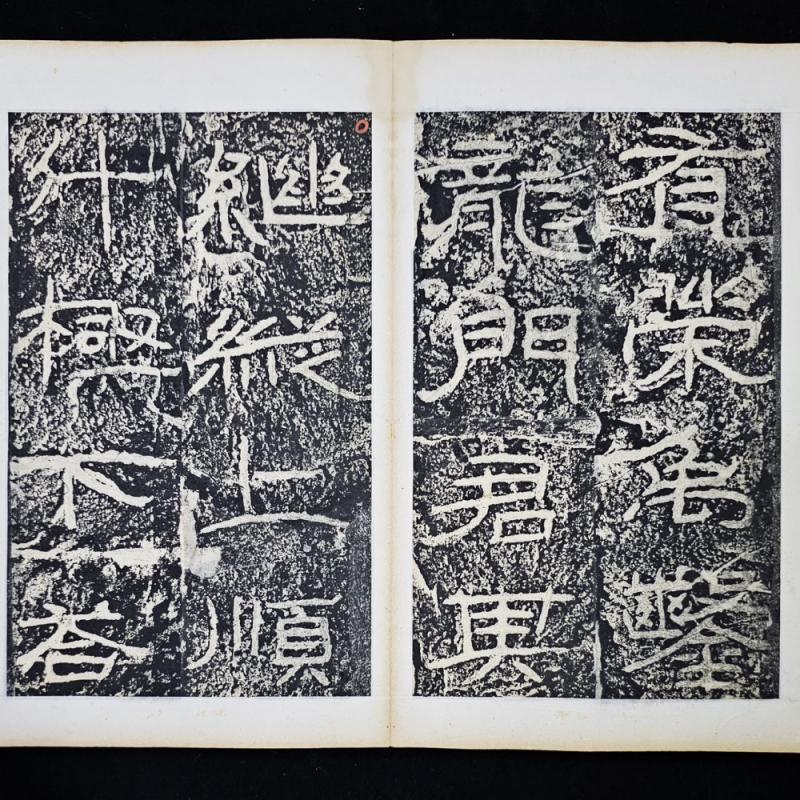 有榮禹鑿
龍門君其
繼縱上順
斗極下答